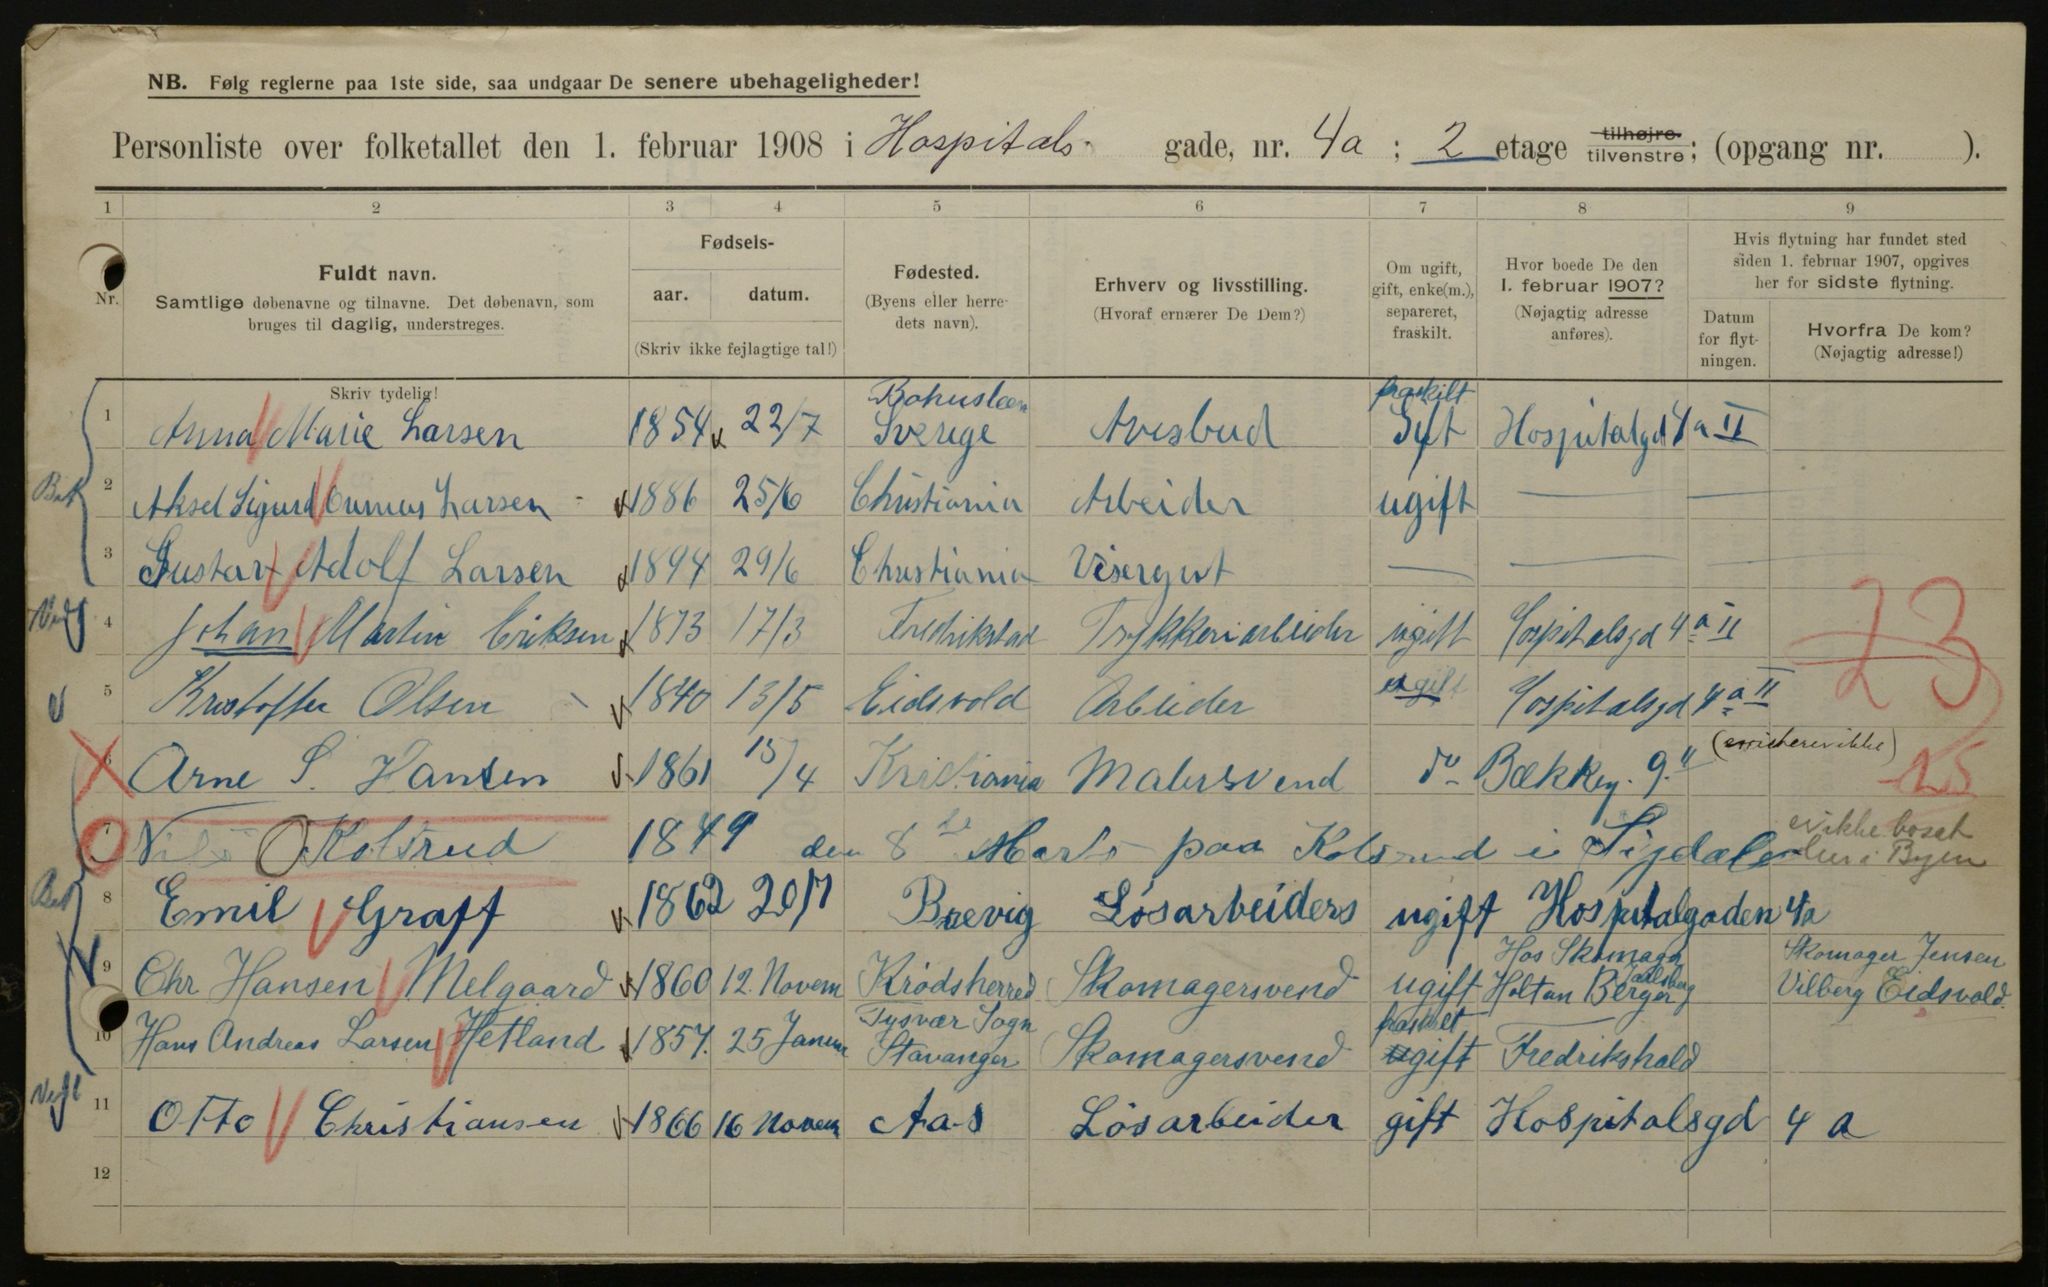 NB. Følg reglerne paa 1ste side, saa undgaar De senere ubehageligheder!
Personliste over folketallet den 1. februar 1908 i Hospitals gade, nr. 4a ; 2 etage tilhøjre. tilvenstre ; (opgang nr. ).
1 2 3 4 5 6 7 8 9
Nr.
Fuldt navn.
Samtlige døbenavne og tilnavne. Det døbenavn, som
bruges til daglig, understreges.
Fødsels-
aar. datum.
(Skriv ikke fejlagtige tal!)
Fødested.
(Byens eller herre-
dets navn).
Erhverv og livsstilling.
(Hvoraf ernærer De Dem?)
Om ugift,
gift, enke(m.),
separeret,
fraskilt.
Hvor boede De den
1. februar 1907?
(Nøjagtig adresse
anføres).
Hvis flytning har fundet sted
siden 1. februar 1907, opgives
her for sidste flytning.
Datum
for flyt-
ningen.
Hvorfra De kom?
(Nøjagtig adresse!)
Skriv tydelig!
Bohuslæn fraskilt
1 Anna Marie Larsen 1854 22/7 Sverige Avisbud Gift Hospitalgd 4a II
2 Aksel Sigurd Larsen 1886 25/6 Christiania Arbeider ugift — —
3 Gustav Adolf Larsen 1894 29/6 Christiania Visergut — — —
4 Johan Martin Eriksen 1873 17/3 Fredrikstad Trykkeriarbeider ugift Hospitalsgd 4a II
23
5 Kristoffer Olsen 1840 13/5 Eidsvold Arbeider ugift Hospitalsgd 4a II
6 Arne S. Hansen 1861 15/4 Kristiania Malersvend do Bækkev. 9 II
25
7 Nils O Kolsrud 1849 den 8de Marts paa Kolsrud i Sigdal
er ikke bosat
her i Byen
8 Emil Graff 1862 20/7 Brevig Løsarbeiders ugift Hospitalgaden 4a
Hos Skomager Skomager Jensen
9 Chr Hansen Melgaard 1860 12. Novem Krødsherred Skomagersvend ugift Holtan Berger Jarlsberg Vilberg Eidsvold.
Tysvær Sogn fraskilt
10 Hans Andreas Larsen Hetland 1857. 25 Januar Stavanger Skomagersvend ugift Fredrikshald
11 Otto Christiansen 1866 16 Novem Aas Løsarbeider gift Hospitalsgd 4 a
12